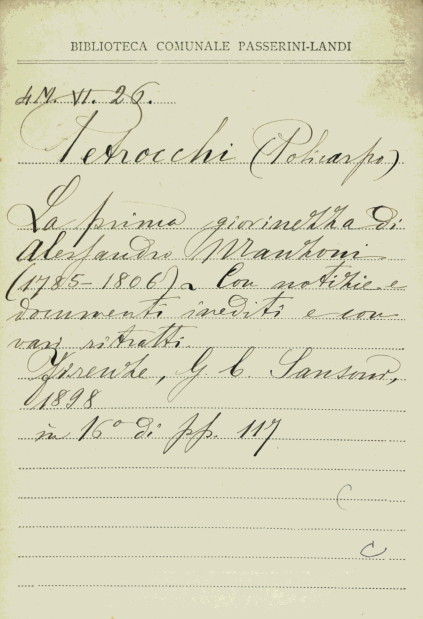 BIBLIOTECA COMUNALE PASSERINI-LANDI
4M. VI. 26.
Petrocchi (Policarpo)
La prima giovinezza di
Alessandro Manzoni
(1785-1806). Con notizie e
documenti inediti e con
vari ritratti.
Firenze, G C. Sansoni,
1898
in 16° di pp. 117
C
C